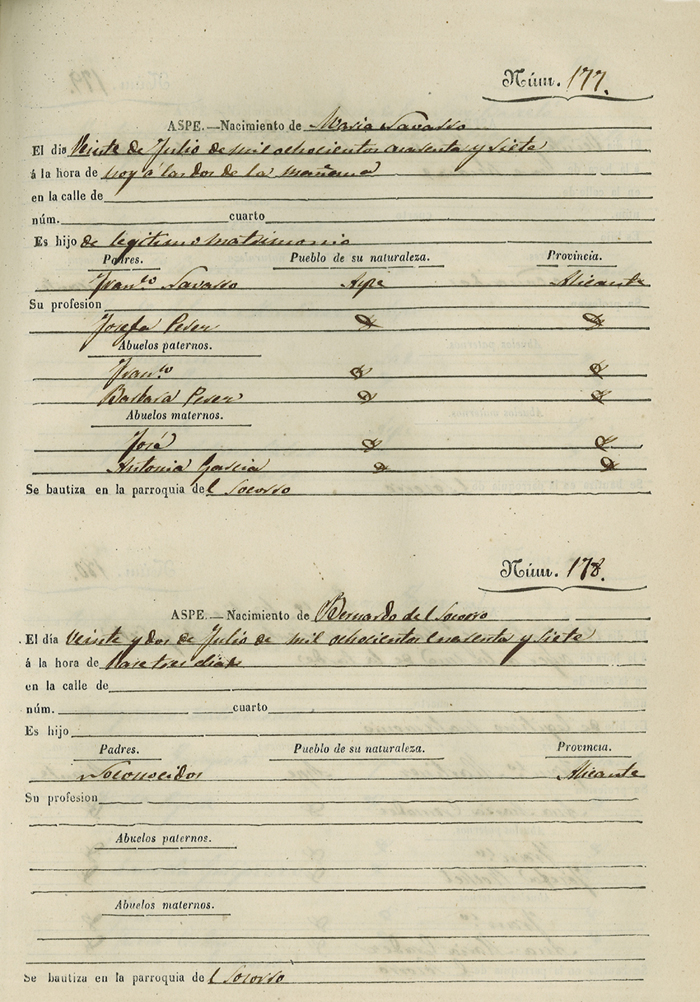 Núm. 177.
ASPE.—Nacimiento de Maria Navarro
El día Veinte de Julio de mil ochocientos cuarenta y siete
á la hora de hoy á las dos de la mañana
en la calle de
núm. cuarto
Es hijo de legitimo matrimonio
Padres. Pueblo de su naturaleza. Provincia.
Franco Navarro Aspe Alicante
Su profesion
Josefa Perez
Abuelos paternos.
Franco
Barbara Perez
Abuelos maternos.
José
Antonia Garcia
Se bautiza en la parroquia del Socorro
Núm. 178.
ASPE.—Nacimiento de Bernardo del Socorro
El día Veinte y dos de Julio de mil ochocientos cuarenta y siete
á la hora de hace tres dias
en la calle de
núm. cuarto
Es hijo
Padres. Pueblo de su naturaleza. Provincia.
Alicante
Su profesion
Abuelos paternos.
Abuelos maternos.
Se bautiza en la parroquia del Socorro